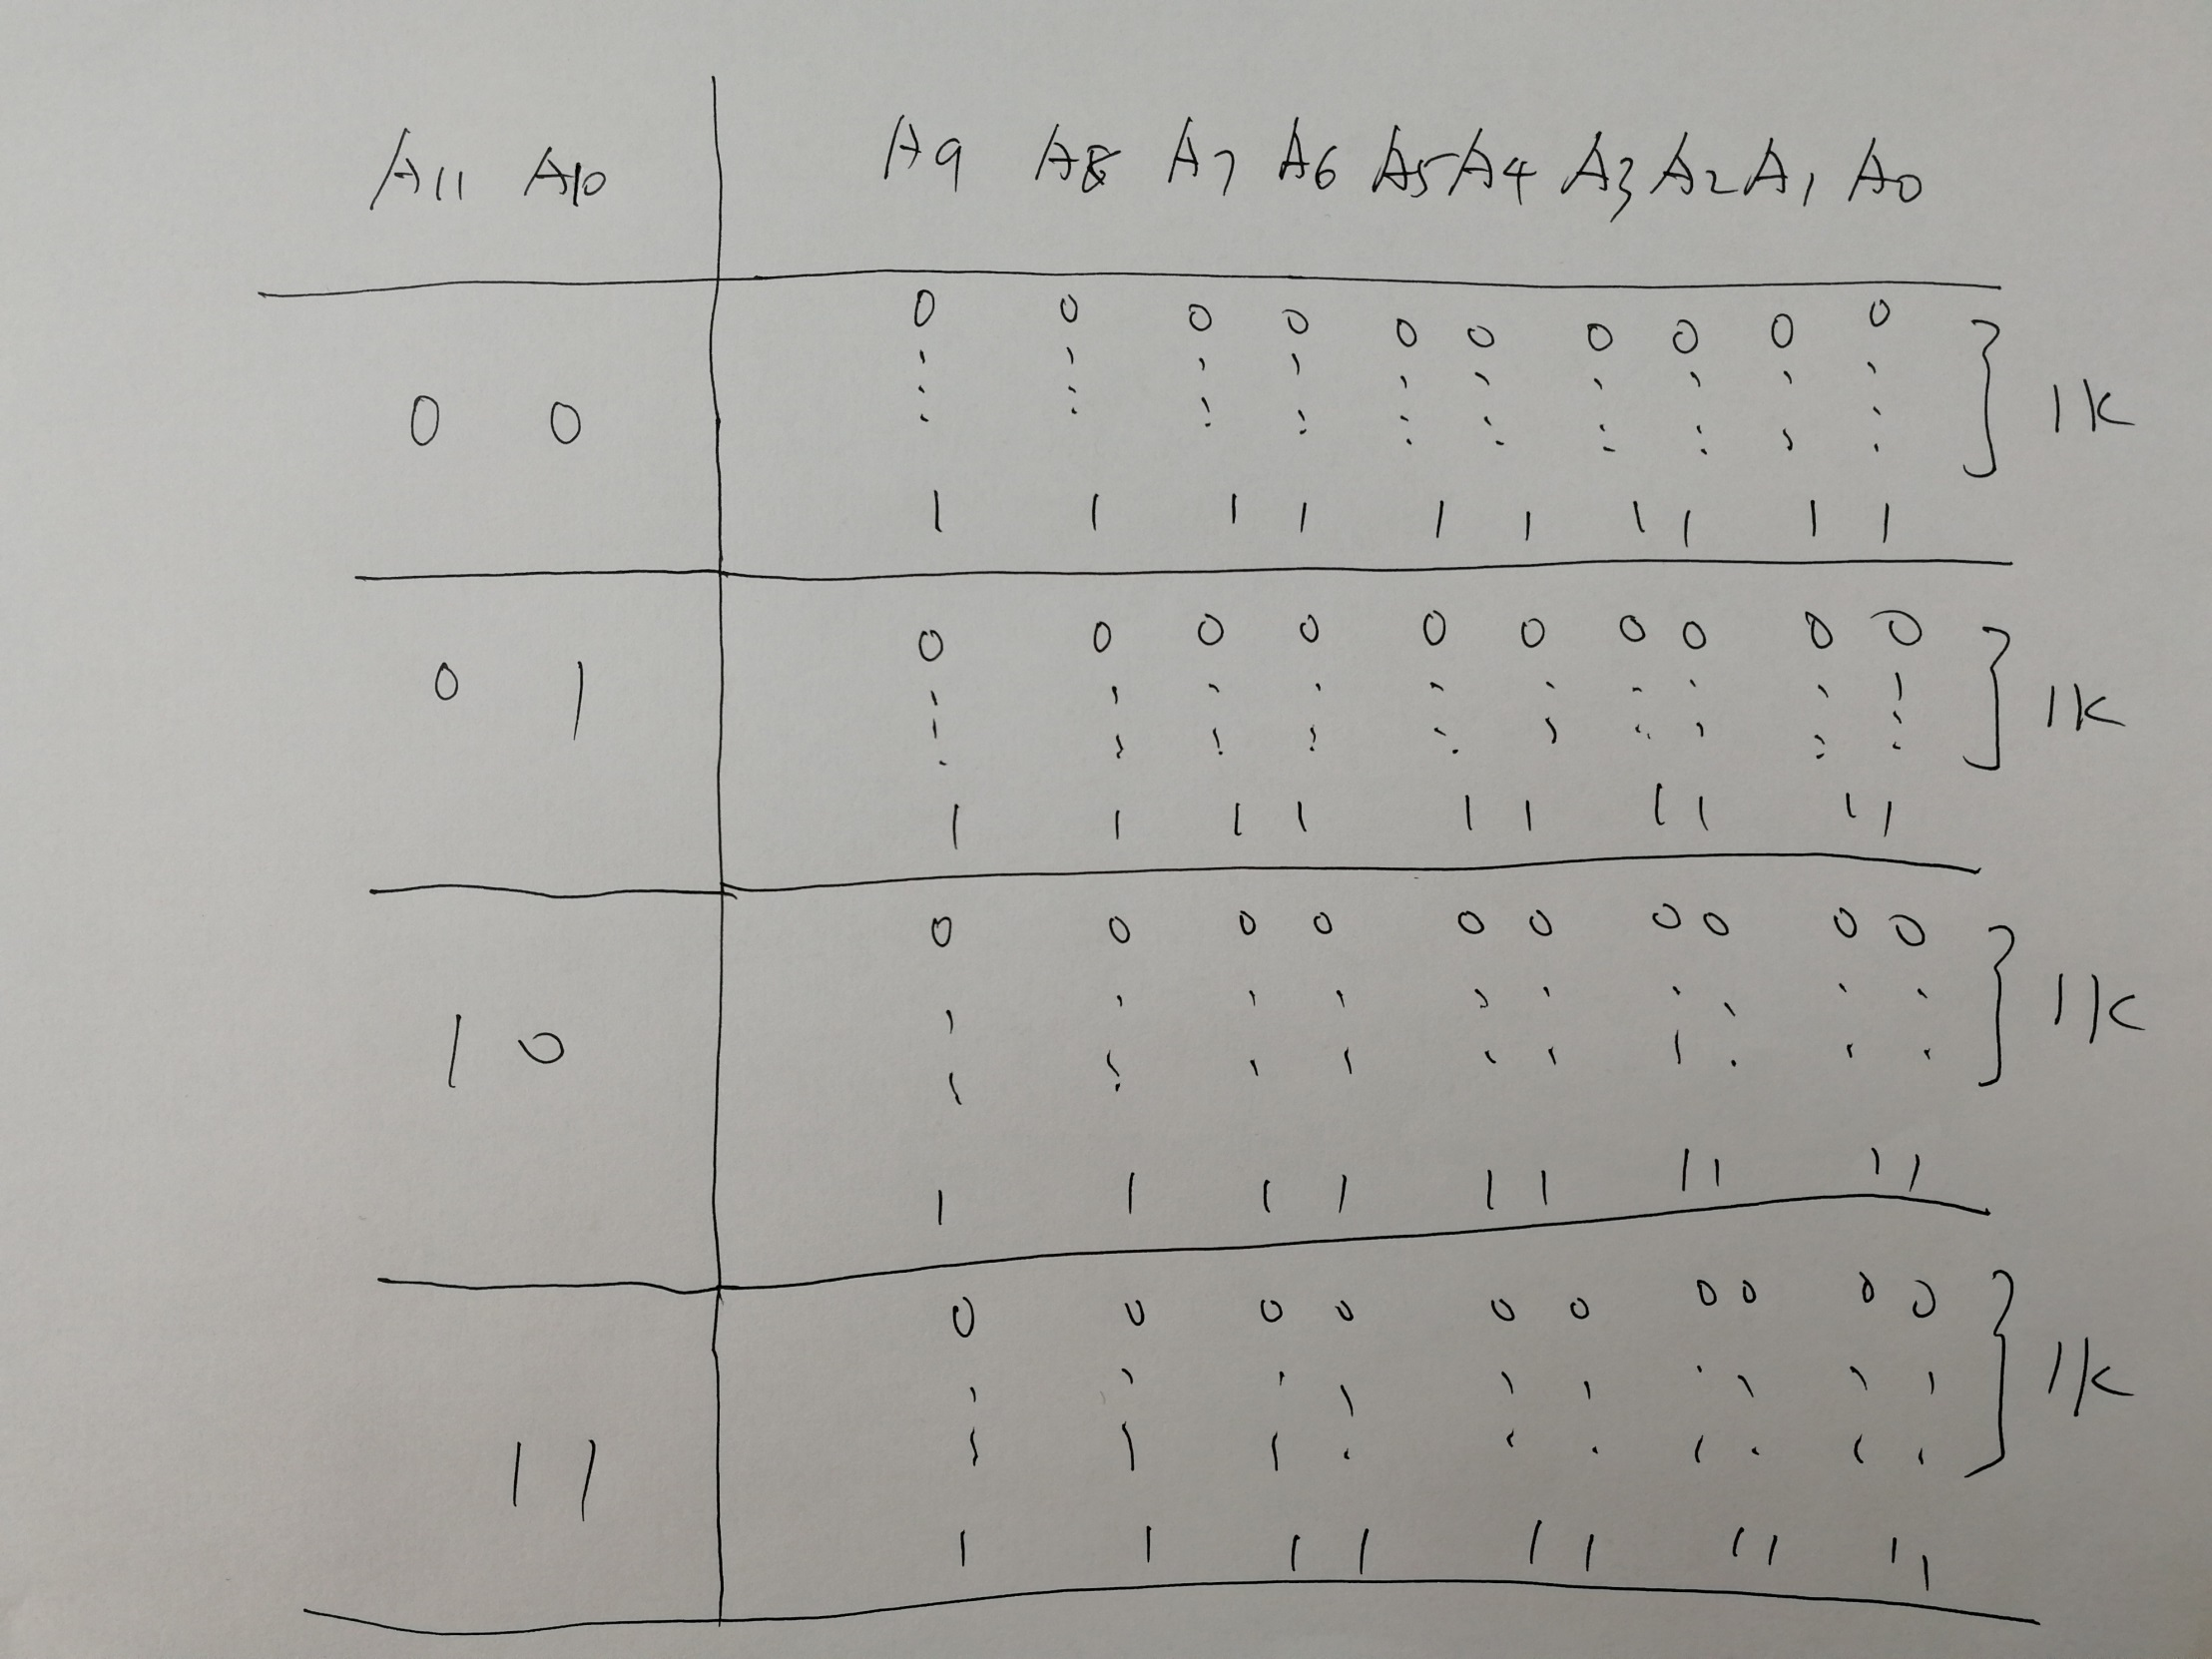 A11 A10 A9 A8 A7 A6 A5 A4 A3 A2 A1 A0
0 0 0 0 0 0 0 0 0 0
0 0 1K
1 1 1 1 1 1 1 1 1 1
0 0 0 0 0 0 0 0 0 0
0 1 1K
1 1 1 1 1 1 1 1 1 1
0 0 0 0 0 0 0 0 0 0
1 0 1K
1 1 1 1 1 1 1 1 1 1
0 0 0 0 0 0 0 0 0 0
1 1 1K
1 1 1 1 1 1 1 1 1 1